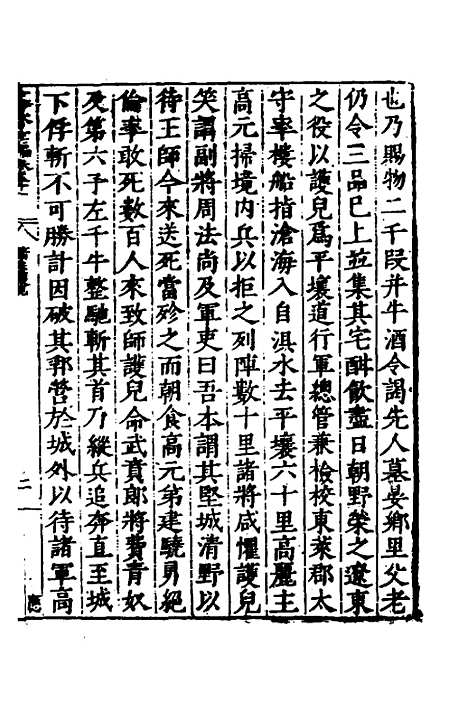 也乃賜物二千段并牛酒令謁先人墓宴鄉里父老
仍令三品已上並集其宅酣飲盡日朝野榮之遼東
之役以護兒爲平壤道行軍總管兼檢校東萊郡太
守率樓船指滄海入自浿水去平壤六十里高麗主
高元掃境內兵以拒之列陣數十里諸將咸懼護兒
笑謂副將周法尚及軍吏曰吾本謂其堅城清野以
待王師今來送死當殄之而朝食高元弟建驍勇絕
倫率敢死數百人來致師護兒命武賁郎將費青奴
及第六子左千牛整馳斬其首乃縱兵追奔直至城
下俘斬不可勝計因破其郛營於城外以待諸軍高